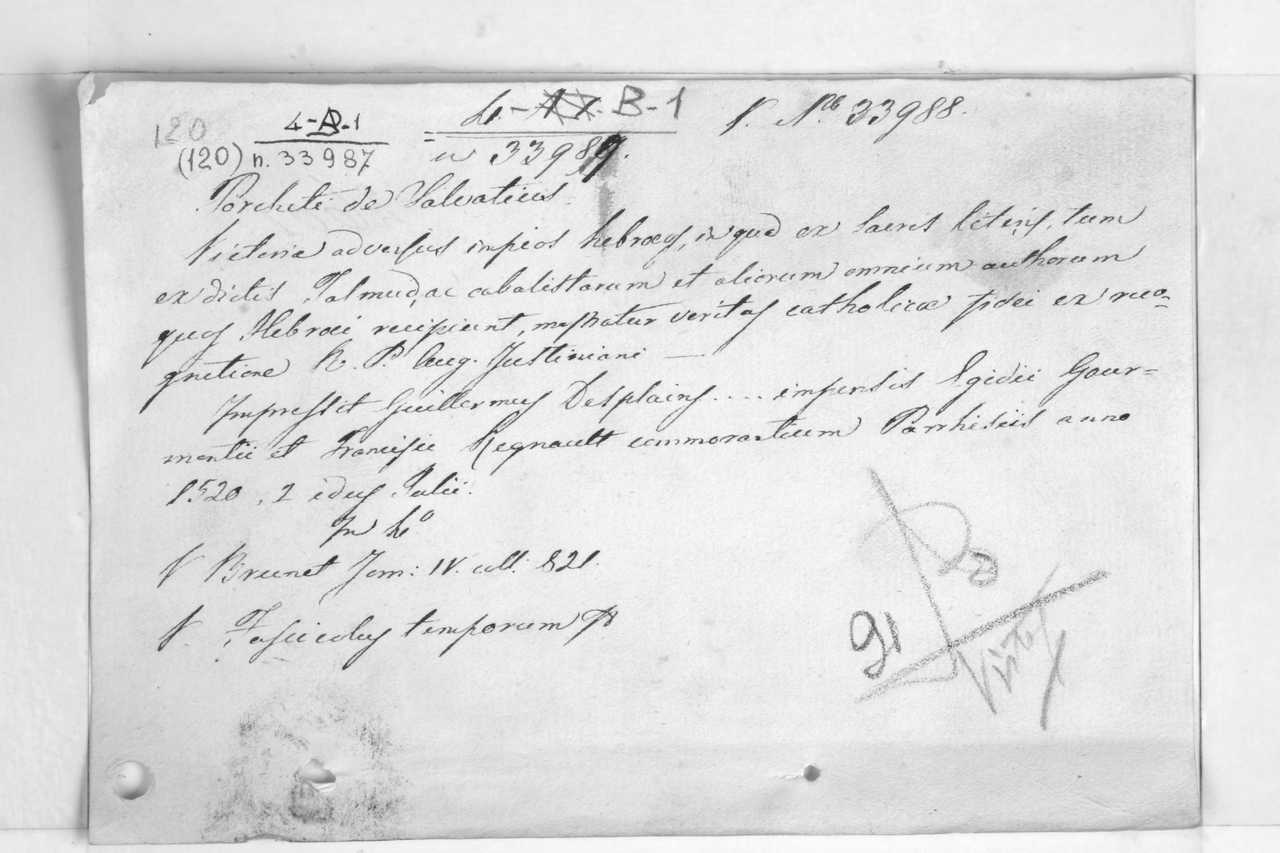 120
4-B-1
4- B-1
V. Nº 33988.
(120) n. 33987
n 33987.
Porcheti de Salvaticis.
Victoria adversus impios hebræos, in qua ex sacris literis, tum
ex dictis Talmud, ac cabalistarum et aliorum omnium authorum
quos Hebroei recipiunt, monstratur veritas catholicæ fidei ex reco-
gnitione R. P. Aug. Justiniani —
Impressit Guillermus Desplains .... impensis Egidii Gour-
montii et Francisci Regnault commorantium Parrhisiis anno
1520, 2 idus Julii.
In 4º
V Brunet Tom: IV. coll. 821.
V. Fasciculus temporum
91